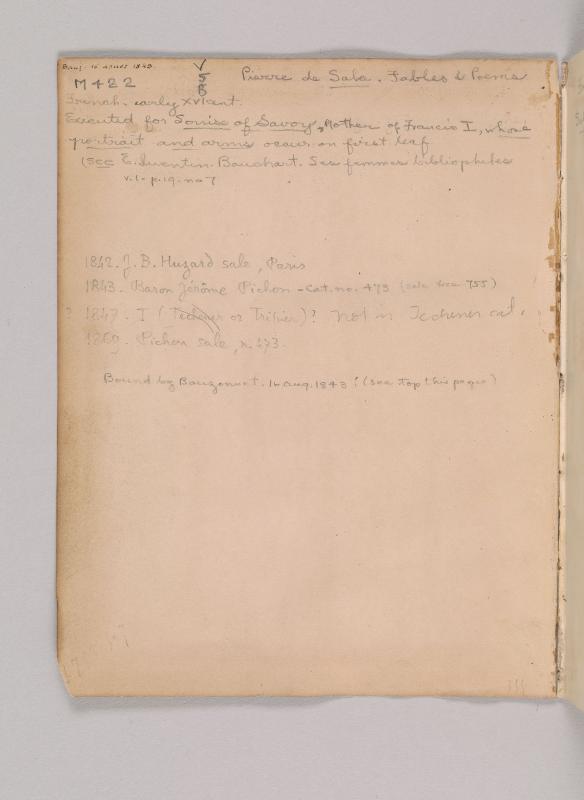 Bauz: 16 aoust 1843.
M 422
V
5
B
Pierre de Sala. Fables & Poems
French. early XVI cent.
Executed for Louise of Savoy, Mother of Francis I, whose
portrait and arms occur on first leaf
(see E. Quentin-Bauchart. Les femmes bibliophiles
v.1 - p.19 - no 7
1842. J. B. Huzard sale, Paris
1843. Baron Jérôme Pichon - cat. no. 473 (sale 755)
? 1847. I (Techener or Tripier)? not in Techener cat.
1869. Pichon sale, n. 473
Bound by Bauzonnet. 16 aug. 1843 ! (see top this page)